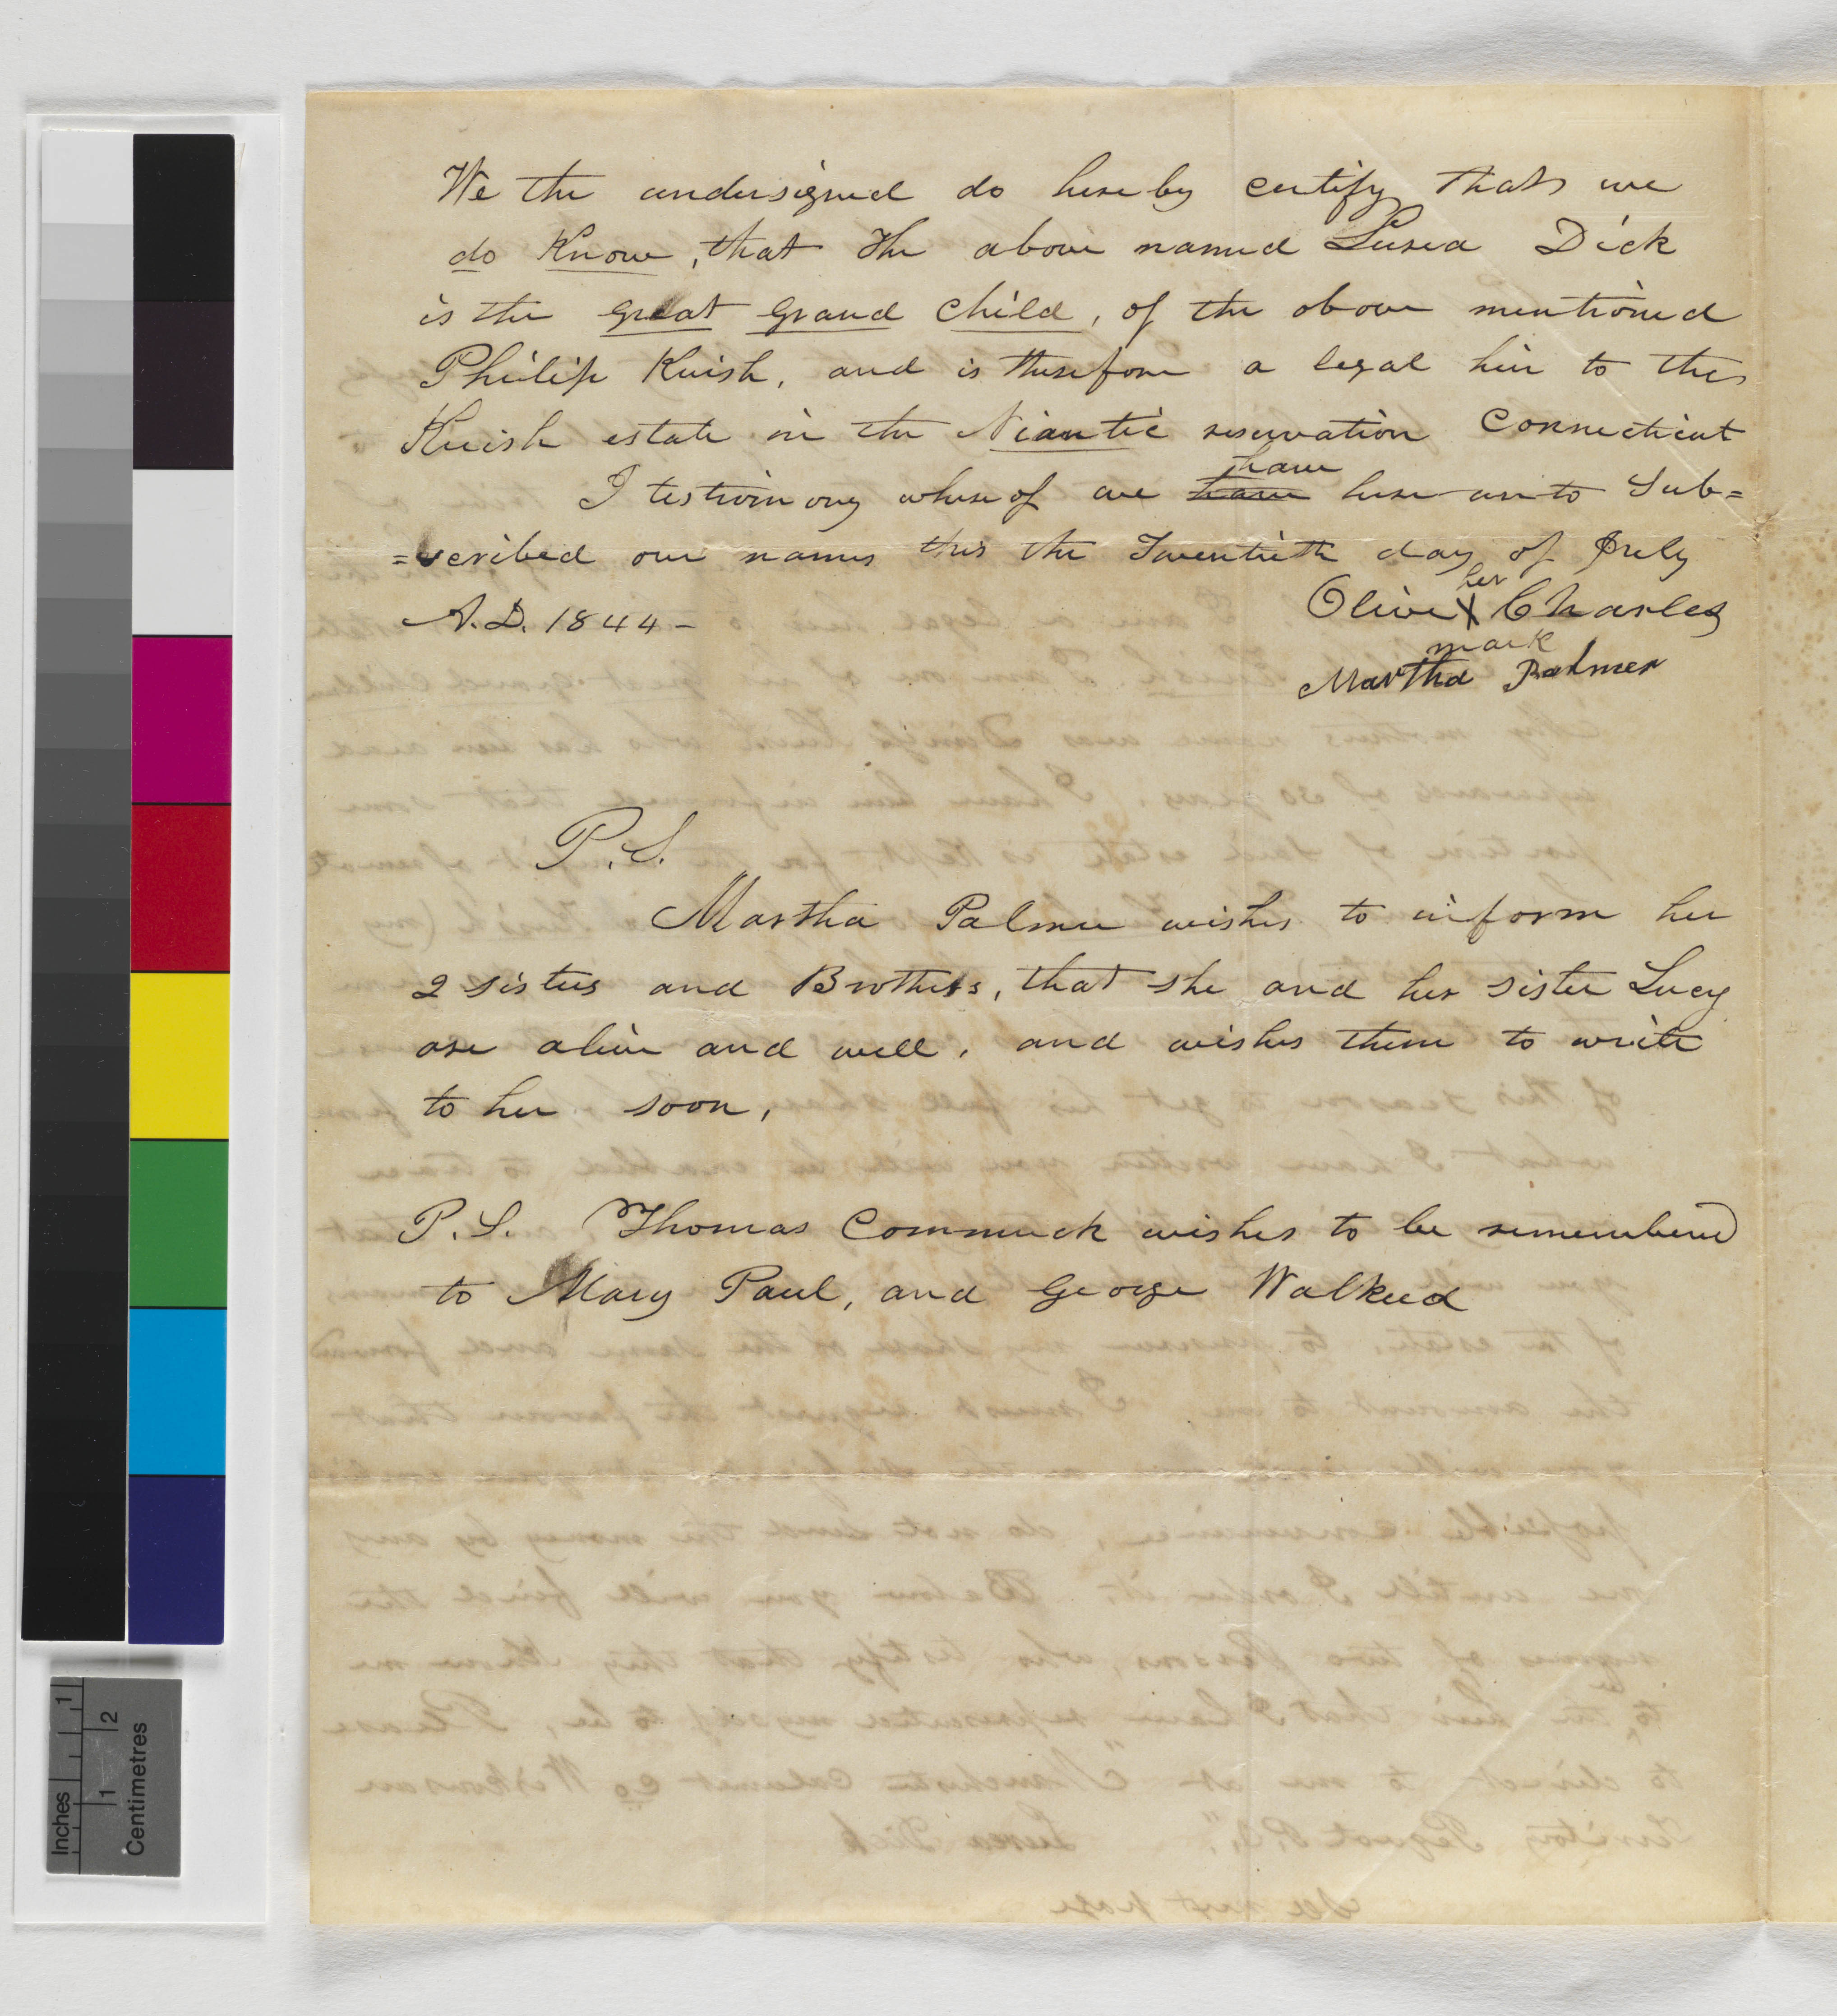 We the undersigned do hereby certify that we
do know, that the above named Lurea Dick
is the great grand child, of the above mentioned
Philip Kuish, and is therefore a legal heir to the
Kuish estate in the Niantic reservation Connecticut
I testimony whereof we have have here unto Sub=
=scribed our names this the Twentieth day of July
A.D. 1844 –
Olive her X mark Charles
Martha Palmer
P.S.
Martha Palmer wishes to inform her
2 sisters and Brothers, that she and her sister Lucy
are alive and well, and wishes them to write
to her soon,
P.S. Thomas Commuck wishes to be remembered
to Mary Paul, and George Walkeed
Inches 1
1 2
Centimetres